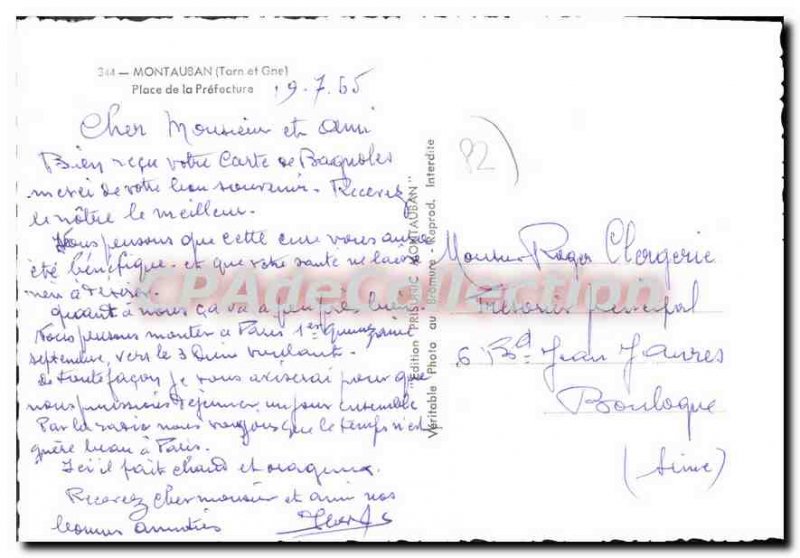 344 — MONTAUBAN (Tarn et Gne)
Place de la Préfecture
9.7.65
Cher Monsieur et ami
Bien reçu votre Carte de Bagnoles
merci de votre bon souvenir. Recevez
le nôtre le meilleur.
Nous pensons que cette cure vous aura
été bénéfique et que votre santé ne laisse
rien à désirer.
Quant à nous ça va à peu près bien.
Nous pensons monter à Paris 1ère quinzaine
septembre, vers le 3
de toute façon je vous aviserai pour que
nous puissions déjeuner un jour ensemble
Par la radio nous voyons que le temps n'est
guère beau à Paris.
Ici il fait chaud et orageux.
Recevez cher monsieur et ami nos
bonnes amitiés
"Edition PRISUNIC MONTAUBAN"
Véritable Photo au Bromure - Reprod. Interdite
82
Monsieur Roger Clergerie
Trésorier principal
6 Bd Jean Jaurès
Boulogne
(Seine)
CPAdeCollection